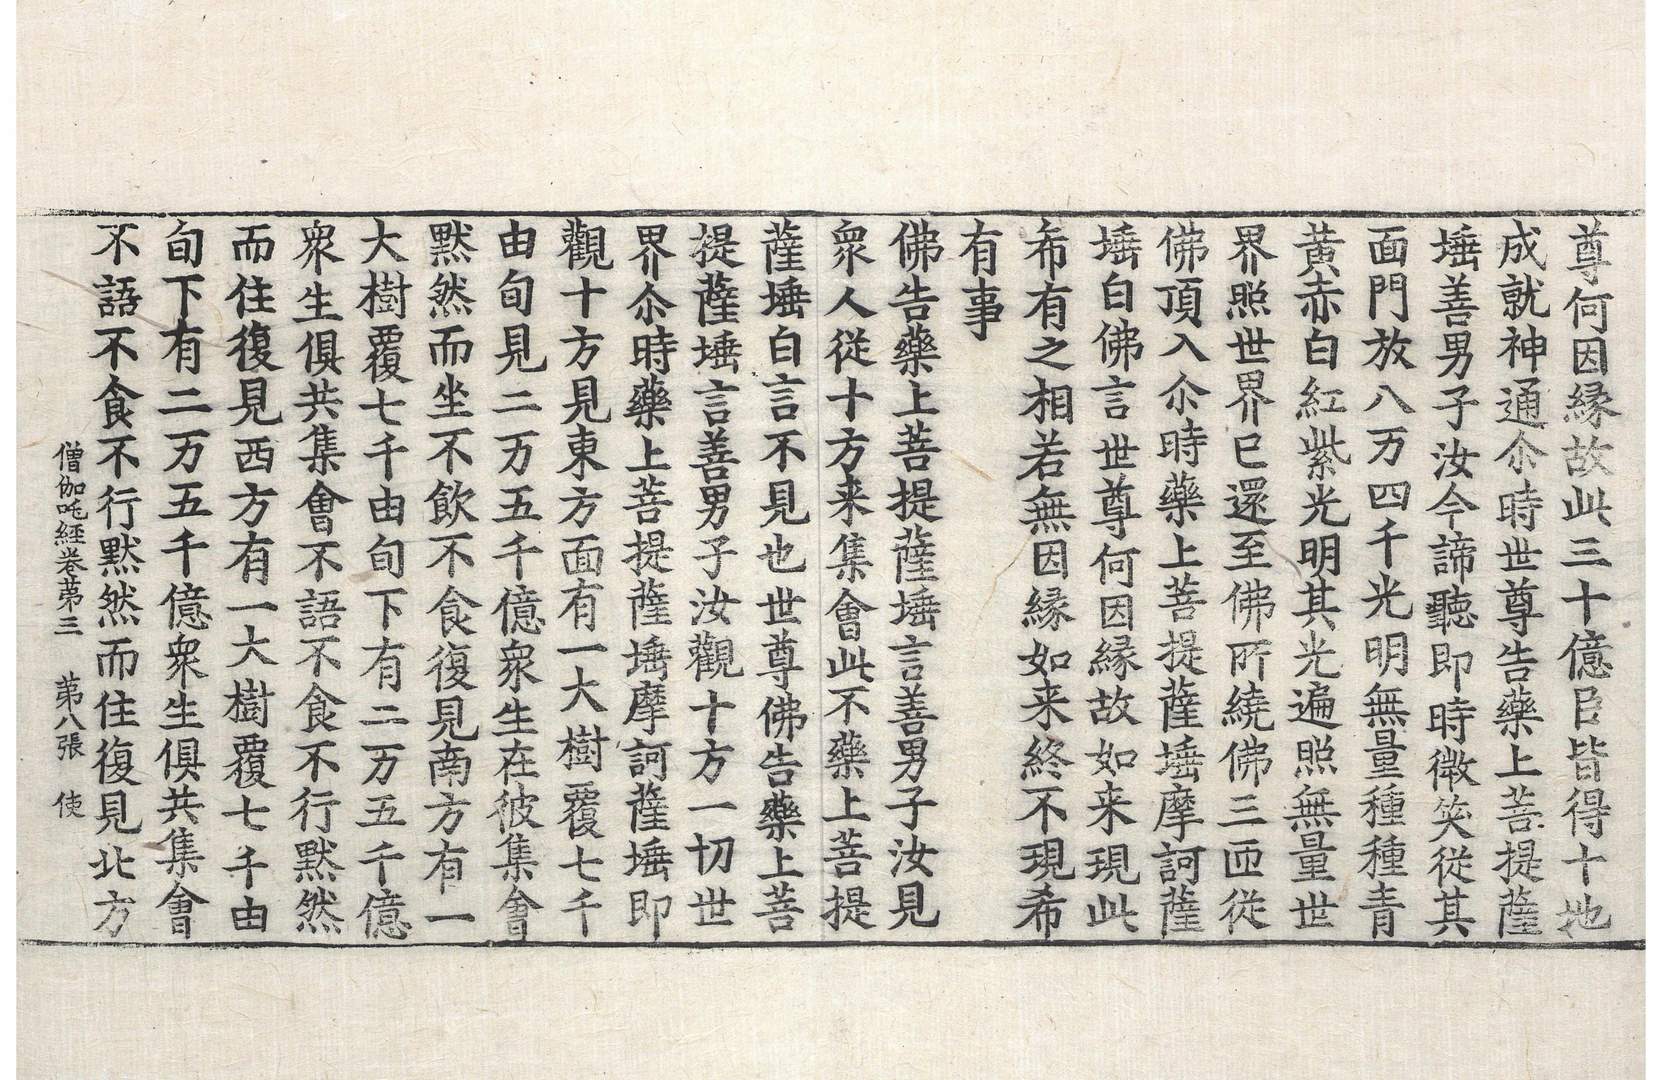 尊何因縁故此三十億臣皆得十地
成就神通尒時世尊告藥上菩提薩
埵善男子汝今諦聽即時微笑従其
面門放八万四千光明無量種種青
黄赤白紅紫光明其光遍照無量世
界照世界已還至佛所繞佛三匝従
佛頂入尒時藥上菩提薩埵摩訶薩
埵白佛言世尊何因縁故如来現此
希有之相若無因縁如来終不現希
有事
佛告藥上菩提薩埵言善男子汝見
衆人従十方来集會此不藥上菩提
薩埵白言不見也世尊佛告藥上菩
提薩埵言善男子汝觀十方一切世
界尒時藥上菩提薩埵摩訶薩埵即
觀十方見東方面有一大樹覆七千
由旬見二万五千億衆生在彼集會
黙然而坐不飲不食復見南方有一
大樹覆七千由旬下有二万五千億
衆生俱共集會不語不食不行黙然
而住復見西方有一大樹覆七千由
旬下有二万五千億衆生俱共集會
不語不食不行黙然而住復見北方
僧伽吒経卷苐三　苐八張　使